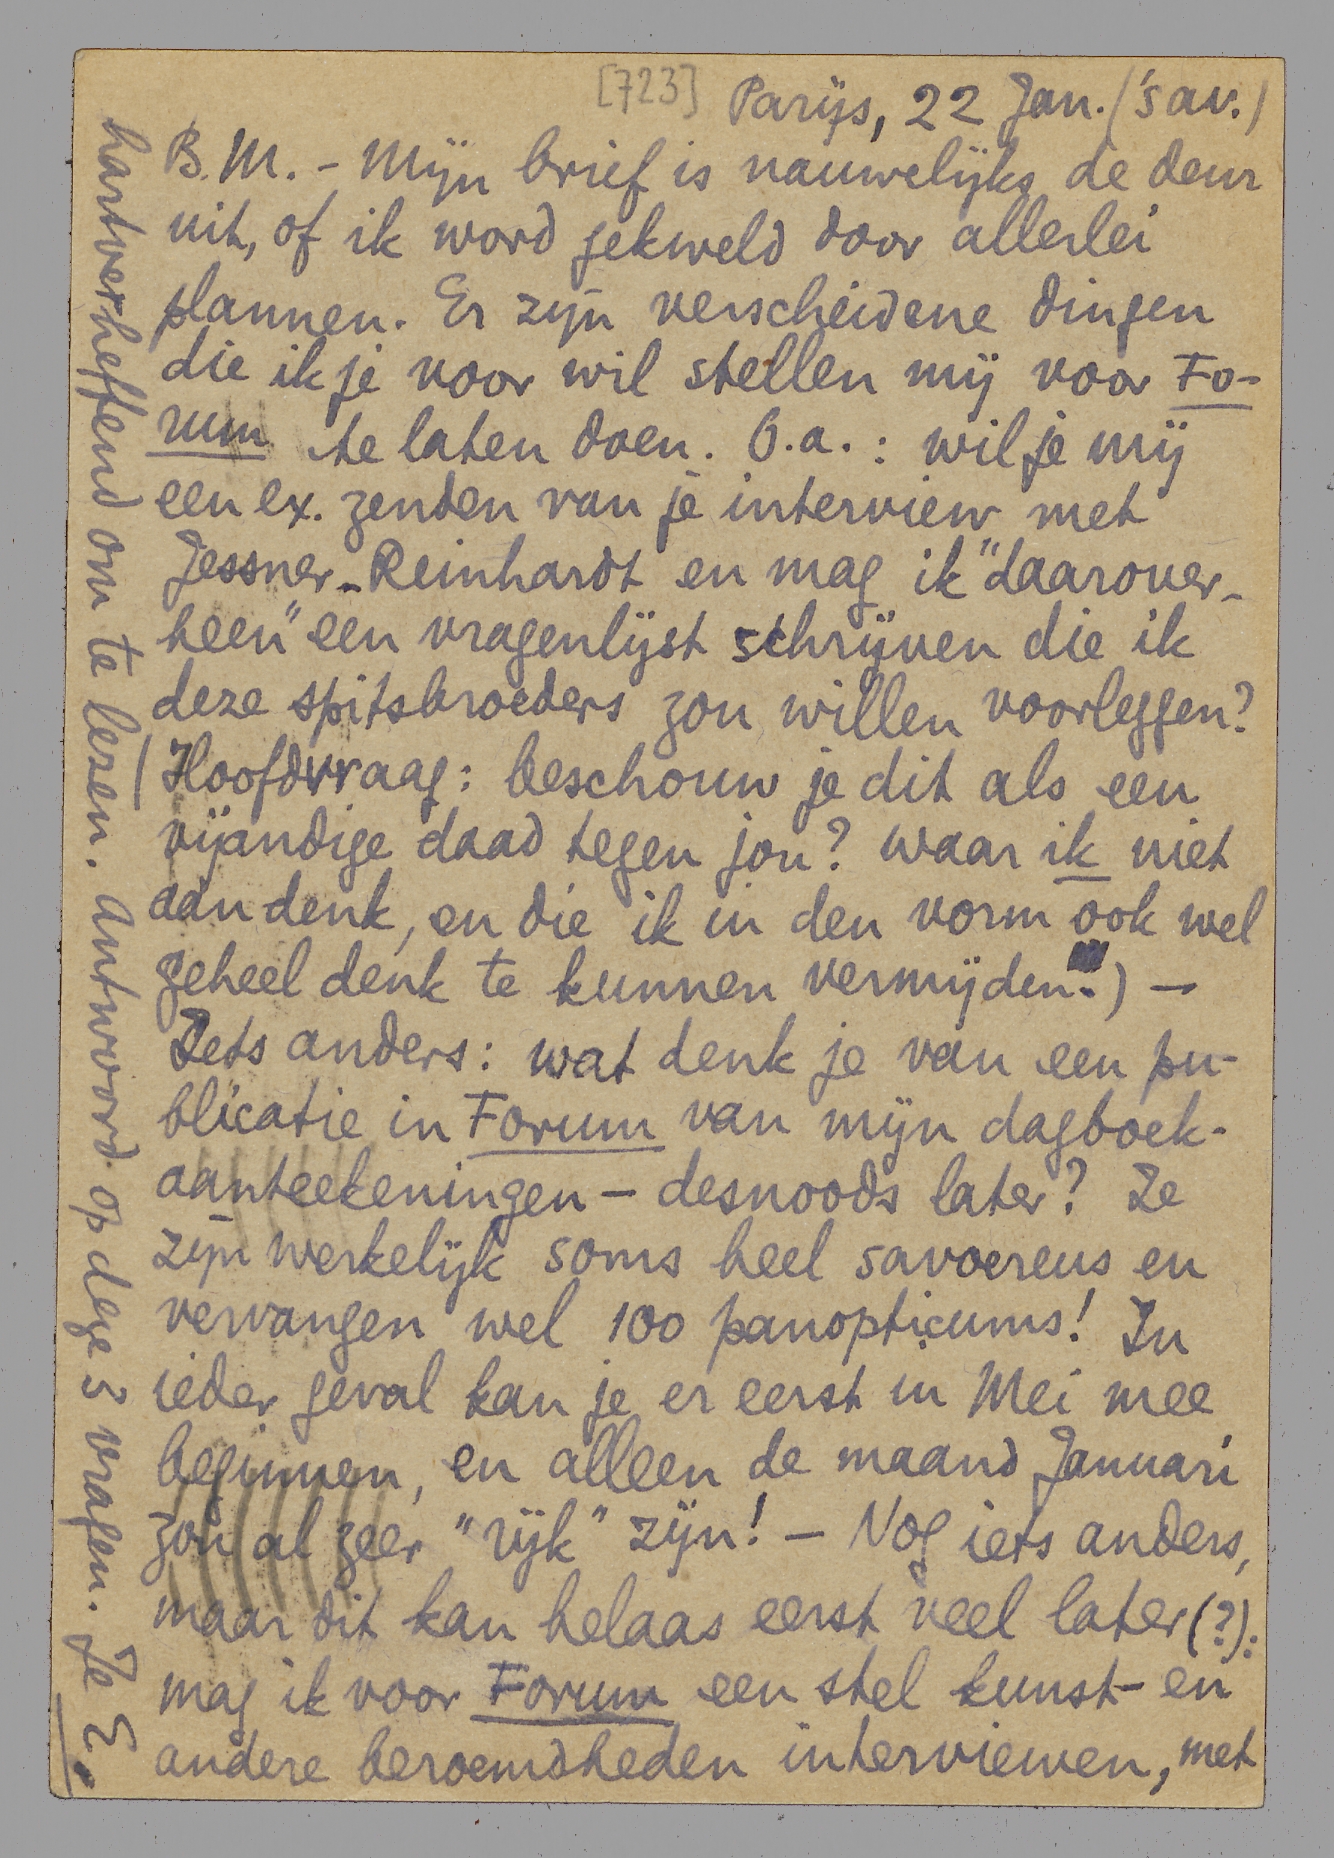 [723]
Parijs, 22 Jan. ('s av.)
B.M. - Mijn brief is nauwelijks de deur
uit, of ik word gekweld door allerlei
plannen. Er zijn verscheidene dingen
die ik je voor wil stellen mij voor Fo-
rum te laten doen. O.a.: wil je mij
een ex. zenden van je interview met
Jessner-Reinhardt en mag ik "daarover-
heen" een vragenlijst schrijven die ik
deze spitsbroeders zou willen voorleggen?
(Hoofdvraag: beschouw je dit als een
vijandige daad tegen jou? waar ik niet
aan denk, en die ik in den vorm ook wel
geheel denk te kunnen vermijden.) —
Iets anders: wat denk je van een pu-
blicatie in Forum van mijn dagboek-
aanteekeningen - desnoods later? Ze
zijn werkelijk soms heel savoereus en
vervangen wel 100 panopticums! In
ieder geval kan je er eerst in Mei mee
beginnen, en alleen de maand Januari
zou al zeer "rijk" zijn! - Nog iets anders,
maar dit kan helaas eerst veel later (?):
mag ik voor Forum een stel kunst- en
andere beroemdheden interviewen, met
hartverheffend om te lezen. Antwoord op deze 3 vragen. Je E.